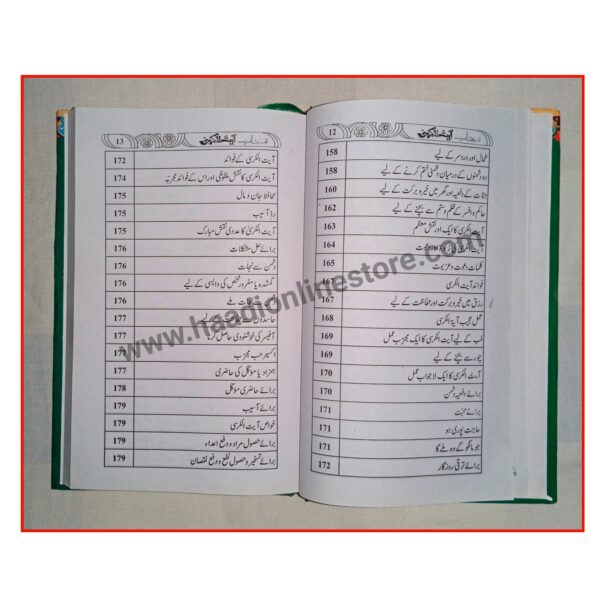 12
آیت الکرسی
طحال اور درد سر کے لیے 158
دو دشمنوں کے درمیان دشمنی ختم کرنے کے لیے 158
جنات کے دفعیہ اور گھر میں خیر و برکت کے لیے 160
حاکم و افسر کے ظلم و ستم سے بچنے کے لیے 162
آیت الکرسی کا ایک اور نقش معظم 163
آیت الکرسی کی زکوٰۃ اور دعوت 164
کلمات دعوت و عزیمت 165
فوائد آیت الکرسی 167
رزق میں خیر و برکت اور حفاظت کے لیے 167
عمل عجیب آیۃ الکرسی 168
حُب کے لیے آیت الکرسی کا ایک مجرب عمل 169
چور سے بچنے کے لیے 169
آیت الکرسی کا ایک لاجواب عمل 170
برائے دفعیہ دشمن 170
برائے محبت 171
حاجت پوری ہو 171
جو مانگو گے وہ ملے گا 171
برائے ترقی روزگار 172
آیت الکرسی
13
آیت الکرسی کے فوائد 172
آیت الکرسی کا نقش ملفوظی اور اس کے فوائد مجربہ 174
محافظ جان و مال 175
ردِ آسیب 175
آیت الکرسی کا عددی نقش مبارک 175
برائے حل مشکلات 176
دشمن سے نجات 176
گمشدہ یا مفرور شخص کی واپسی کے لیے 176
سے نجات ملے 176
177
آفیسر کی خوشنودی حاصل 177
اکسیر حب مجرب 177
ہمزاد یا مؤکل کی حاضری 177
برائے حاضری مؤکل 178
برائے آسیب 179
خواص آیت الکرسی 179
برائے حصول مراد و دفع اعداء 179
برائے تسخیر و حصول نفع و دفع نقصان 179
www.haadionlinestore.com